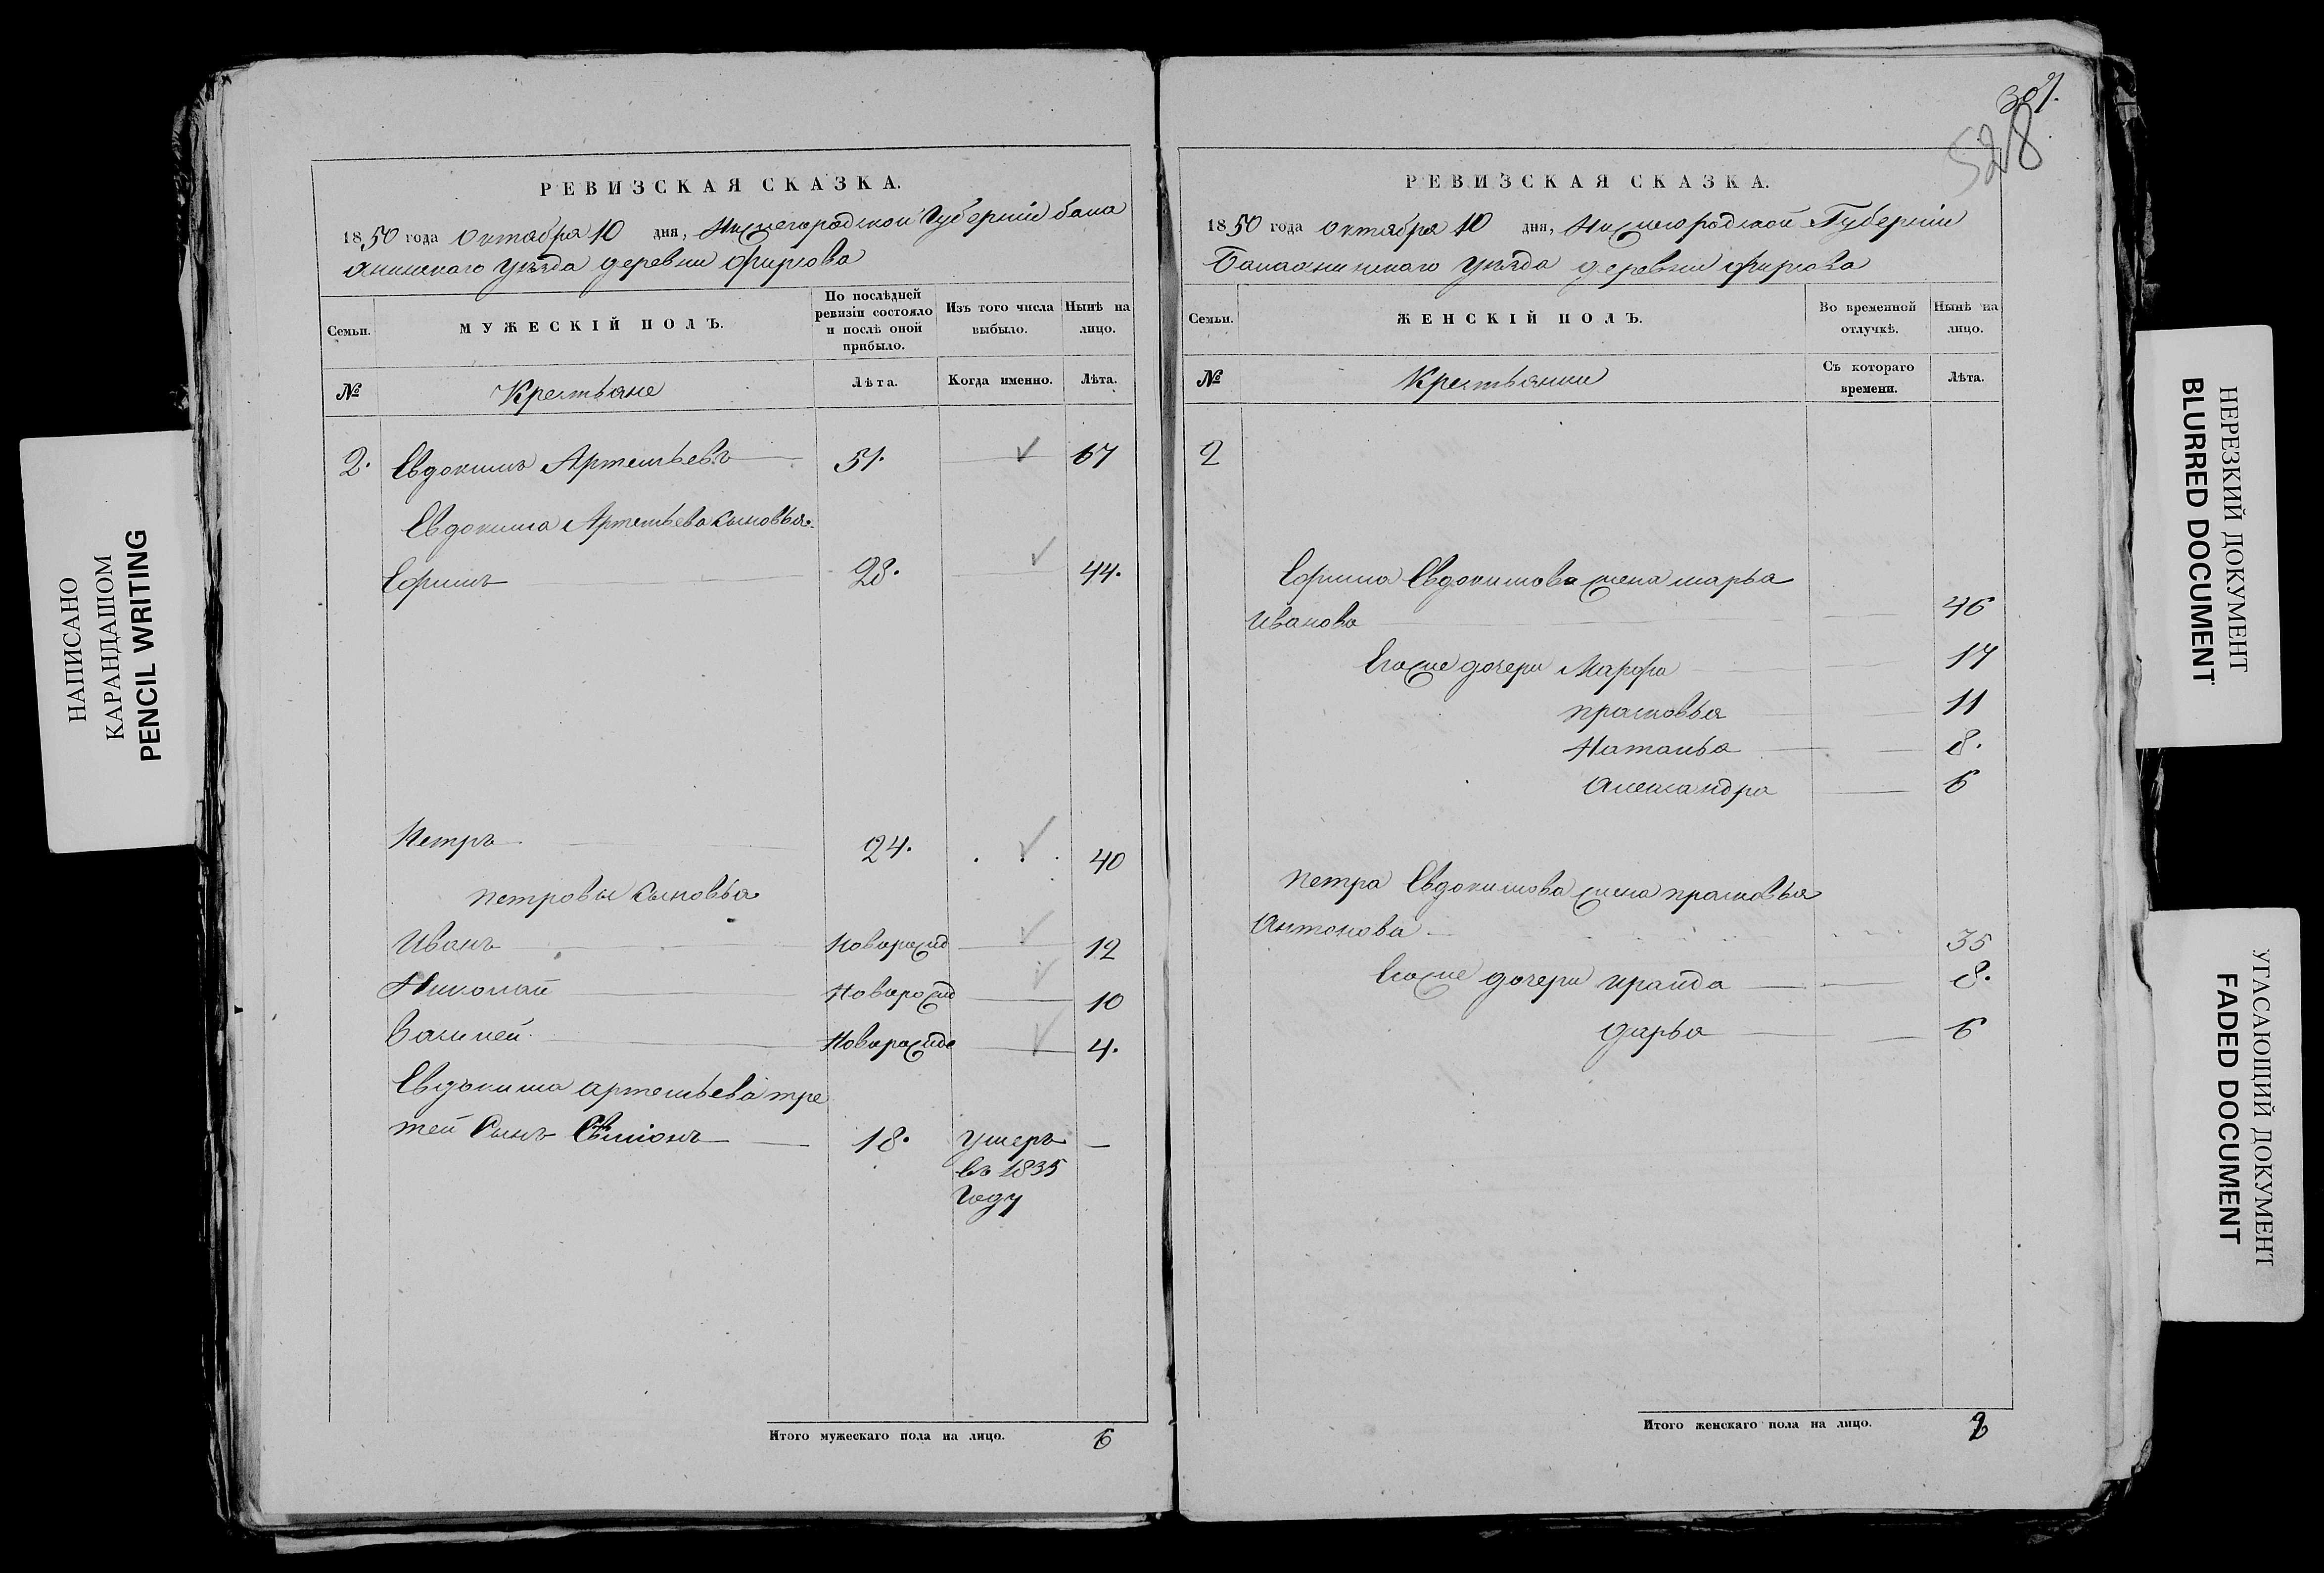 НАПИСАНО
КАРАНДАШОМ
PENCIL WRITING
РЕВИЗСКАЯ СКАЗКА.
1850 года Октября 10 дня, Нижегородской Губерніи Бала
хнинскаго Уѣзда деревни Фирсова
Семьи.
МУЖЕСКІЙ ПОЛЪ.
По послѣдней ревизіи состояло и послѣ оной прибыло.
Изъ того числа выбыло.
Нынѣ на лицо.
№
Крестьяне
Лѣта.
Когда именно.
Лѣта.
2. Евдокимъ Артемьевъ 51. 67
Евдокима Артемьева сыновья.
Ефимъ 28. 44.
Петръ 24. 40
Петровы сыновья
Иванъ Новорожд 12
Николай Новорожд 10
Василей Новорожде 4.
Евдокима Артемьева тре
тей Сынъ Семіонъ 18. умеръ
въ 1835
году
Итого мужескаго пола на лицо. 6
301.
528
РЕВИЗСКАЯ СКАЗКА.
1850 года Октября 10 дня, Нижегородской Губерніи
Балахнинскаго Уѣзда деревни Фирсова
Семьи.
ЖЕНСКІЙ ПОЛЪ.
Во временной отлучкѣ.
Нынѣ на лицо.
№
Крестьянки
Съ котораго времени.
Лѣта.
2
Ефима Евдокимова жена Марья
Иванова 46
Ево же дочери Марфа 17
Прасковья 11
Наталья 8.
Александра 6
Петра Евдокимова жена Прасковья
Антонова 35
Ево же дочери Ираида 8.
Дарья 6
Итого женскаго пола на лицо. 8
НЕРЕЗКИЙ ДОКУМЕНТ
BLURRED DOCUMENT
УГАСАЮЩИЙ ДОКУМЕНТ
FADED DOCUMENT